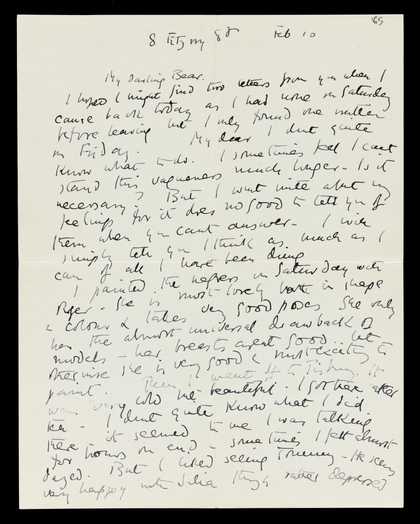 65
8 Fitzroy St Feb 10
My darling Bear.
I hoped I might find two letters from you when I
came back today as I had none on Saturday
before leaving but I only found one written
on Friday. My dear I dont quite
know what to do. I sometimes feel I cant
stand this vagueness much longer - Is it
necessary? But I wont write about my
feelings for it does no good to tell you of
them when you cant answer - I will
simply tell you I think as much as I
can of all I have been doing.
I painted the negress on Saturday with
Roger - She is most lovely both in shape
& colour & takes very good poses. She only
has the almost universal drawback of
models - her breasts arent good - but
otherwise she is very good & most exciting to
paint. Then I went to It
was very cold but beautiful. I got here after
tea - I dont quite know what I did
there - it seemed to me I was talking
for hours on end - sometimes I felt almost
dazed. But I liked seeing Tommy - He seems
very happy with Julia though rather depressed